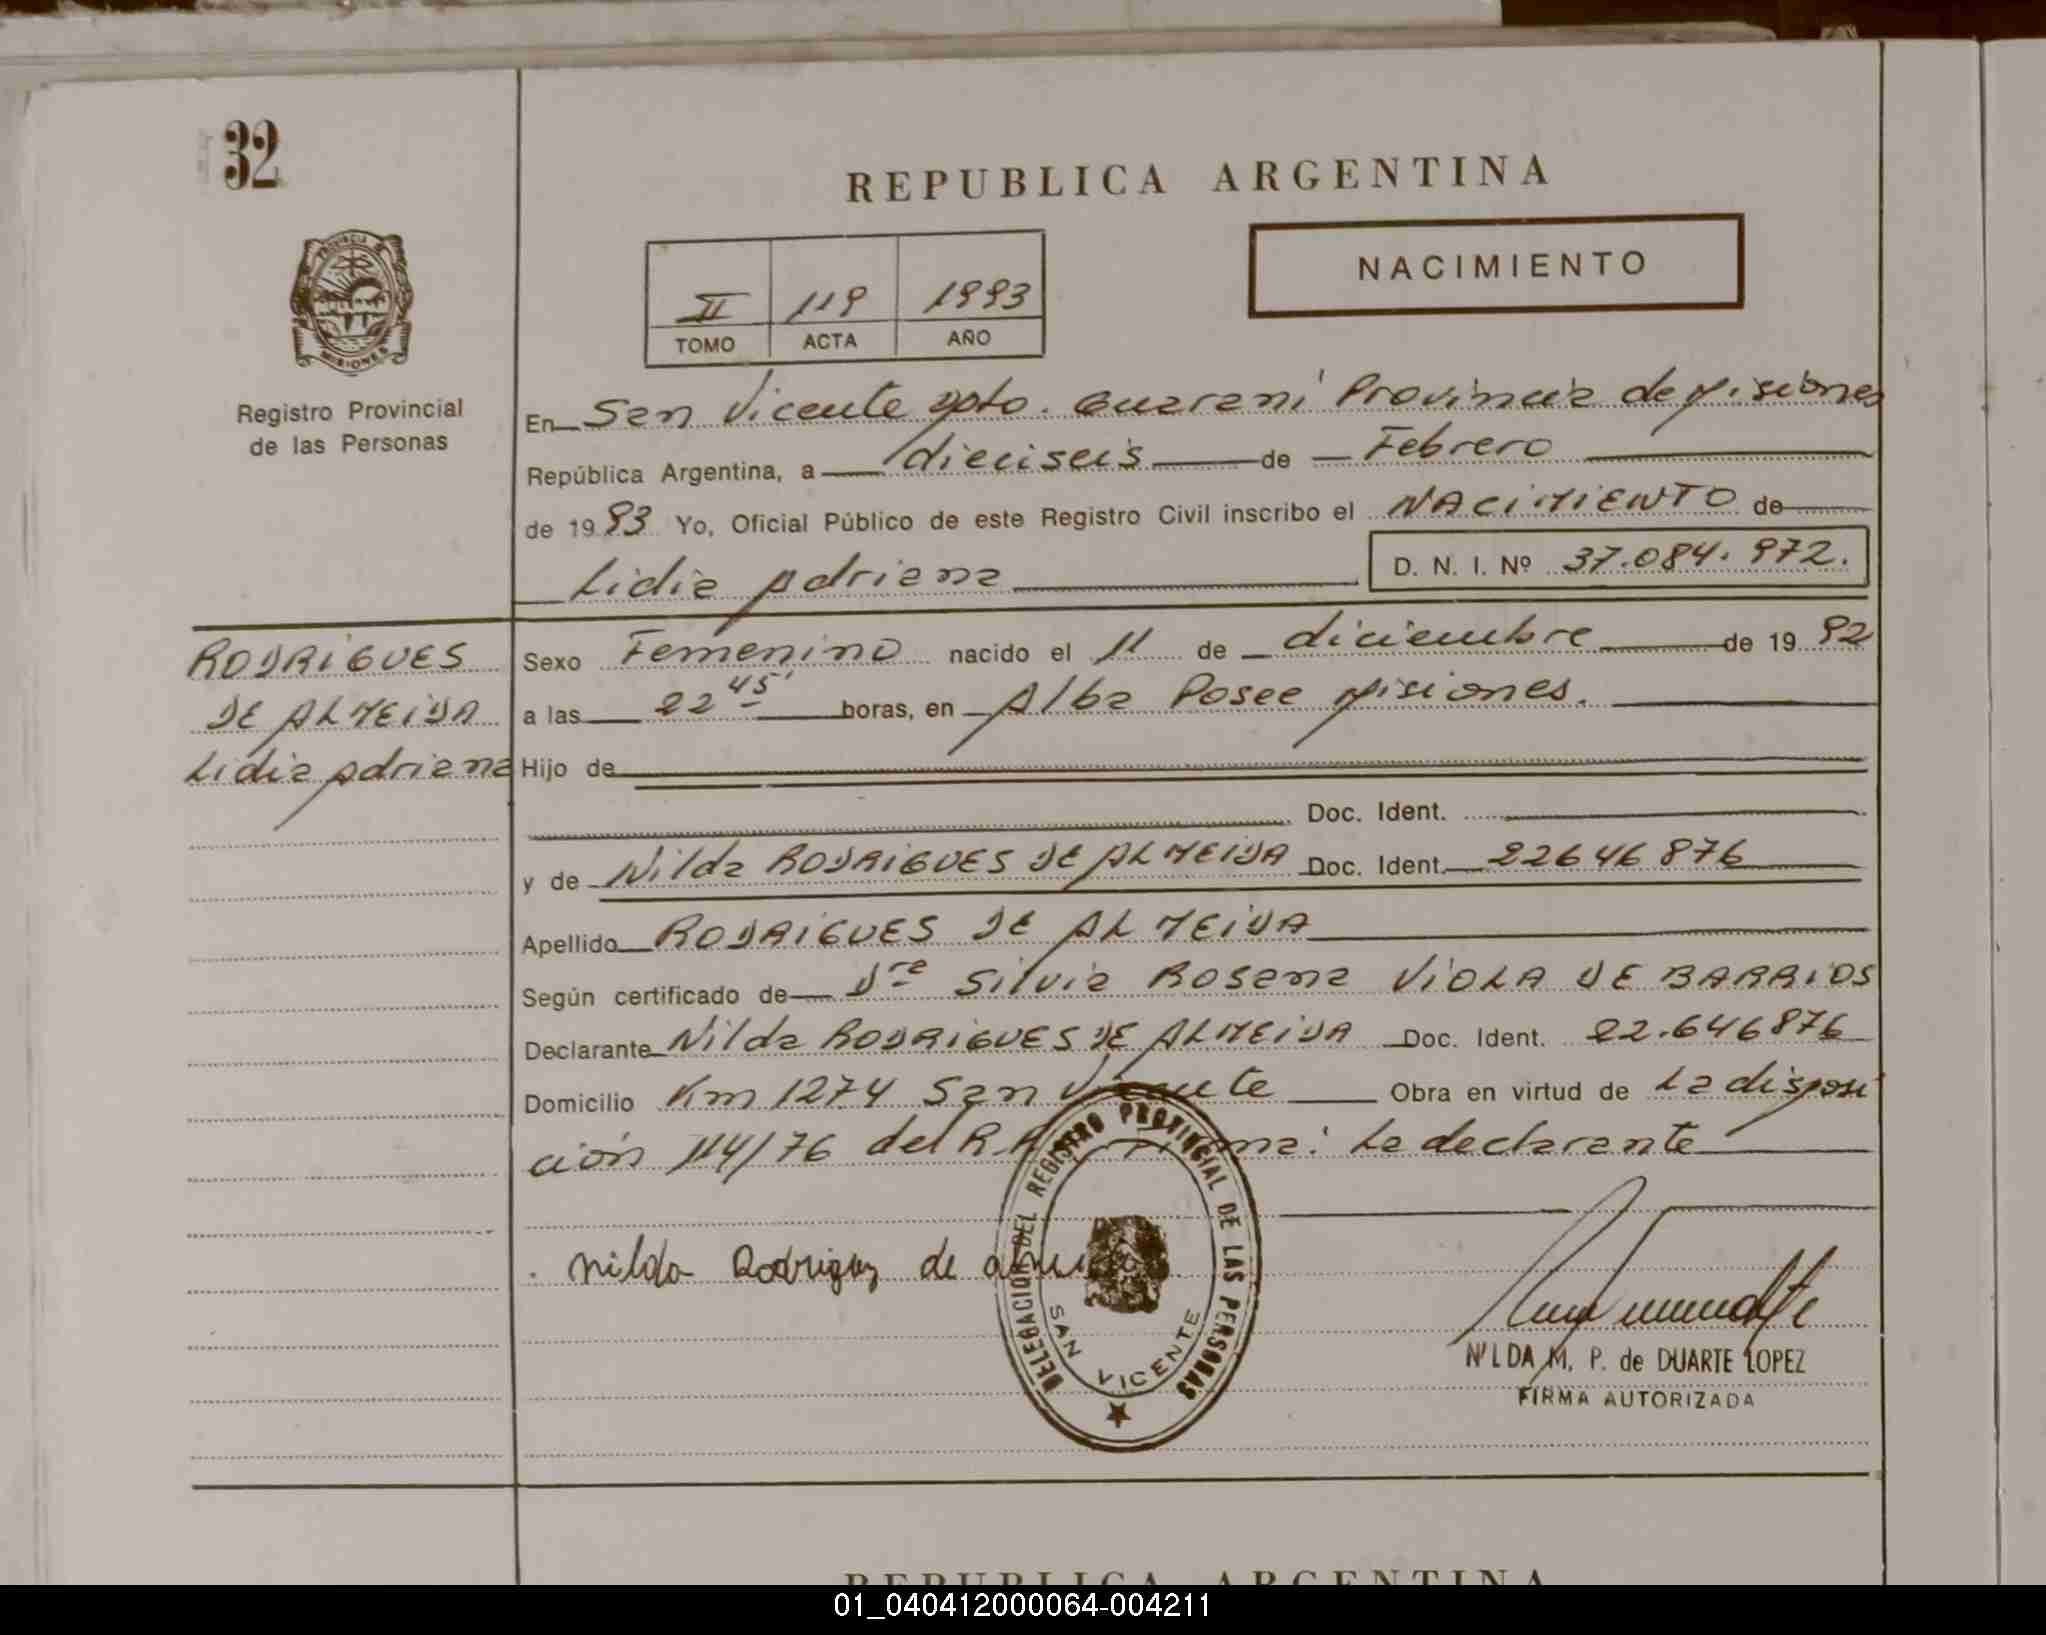 32
REPUBLICA ARGENTINA
NACIMIENTO
II 119 1993
TOMO ACTA AÑO
PROVINCIA DE
MISIONES
Registro Provincial
de las Personas
En San Vicente Dpto. Guarani Provincia de Misiones
República Argentina, a dieciseis de Febrero
de 1993 Yo, Oficial Público de este Registro Civil inscribo el NACIMIENTO de
Lidia Adriana D. N. I. Nº 37.084.972.
RODRIGUES
DE ALMEIDA
Lidia Adriana
Sexo Femenino nacido el 11 de diciembre de 1992
a las 22 45' horas, en Alba Posee Misiones.
Hijo de
Doc. Ident.
y de Nilda RODRIGUES DE ALMEIDA Doc. Ident. 22646876
Apellido RODRIGUES DE ALMEIDA
Según certificado de Dra Silvia Rosana VIOLA DE BARRIOS
Declarante Nilda RODRIGUES DE ALMEIDA Doc. Ident. 22.646876
Domicilio Km 1274 San Vicente Obra en virtud de La disposi
ción 114/76 del R. La declarante
Nilda Rodriguez de
DELEGACION DEL REGISTRO PROVINCIAL DE LAS PERSONAS
SAN VICENTE
NILDA M. P. de DUARTE LOPEZ
FIRMA AUTORIZADA
REPUBLICA ARGENTINA
01_040412000064-004211